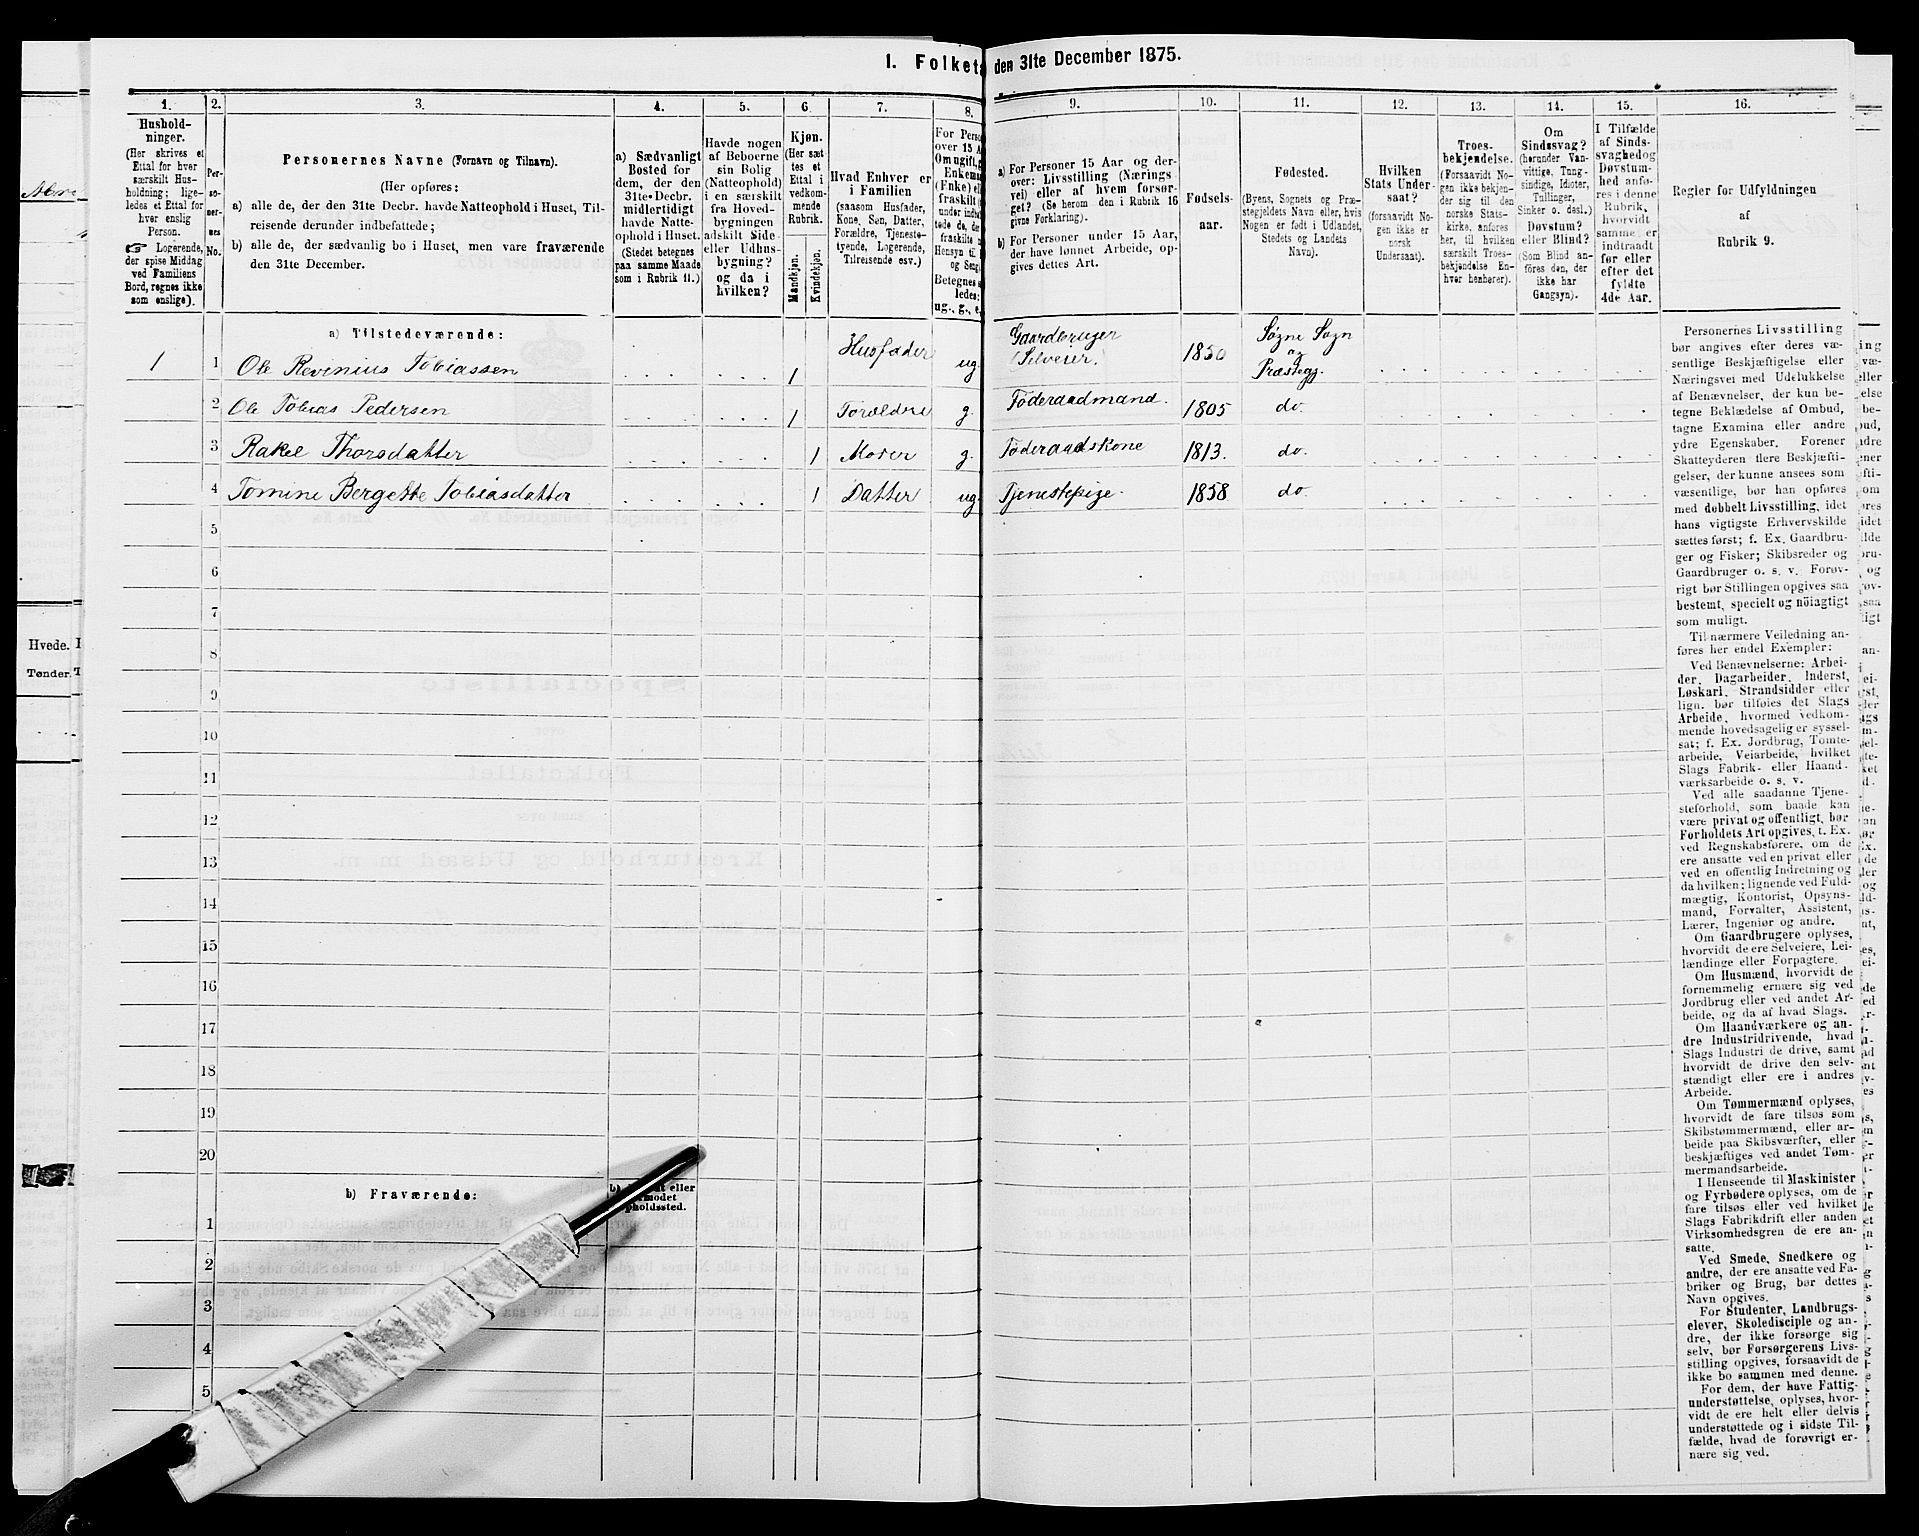 1. Folket
den 31te December 1875.
1.
2.
3.
4.
5.
6.
7.
8.
9.
10.
11.
12.
13.
14.
15.
16.
Hushold-
ninger.
(Her skrives et
Ettal for hver
særskilt Hus-
holdning; lige-
ledes et Ettal for
hver enslig
Person.
☞ Logerende,
der spise Middag
ved Familiens
Bord, regnes ikke
som enslige).
Per-
so-
ner-
nes
No.
Personernes Navne (Fornavn og Tilnavn).
(Her opføres:
a) alle de, der den 31te Decbr. havde Natteophold i Huset, Til-
reisende derunder indbefattede;
b) alle de, der sædvanlig bo i Huset, men vare fraværende
den 31te December.
a) Sædvanligt
Bosted for
dem, der den
31te Decbr.
midlertidigt
havde Natte-
ophold i Huset.
(Stedet betegnes
paa samme Maade
som i Rubrik 11.)
Havde nogen
af Beboerne
sin Bolig
(Natteophold)
i en særskilt
fra Hoved-
bygningen
adskilt Side-
eller Udhus-
bygning?
og da i
hvilken?
Kjøn.
(Her sæt-
tes et
Ettal i
vedkom-
mende
Rubrik.
Mandkjøn.
Kvindekjøn.
Hvad Enhver er
i Familien
(saasom Husfader,
Kone, Søn, Datter,
Forældre, Tjeneste-
tyende, Logerende,
Tilreisende osv.)
For Perso
over 15 A
Om ugift, g
Enkem
(Enke) el
fraskilt
Betegnes
ledes:
ug., g., e.
a) For Personer 15 Aar og der-
over: Livsstilling (Nærings
vei) eller af hvem forsør-
get? (Se herom den i Rubrik 16
givne Forklaring).
b) For Personer under 15 Aar,
der have lønnet Arbeide, op-
gives dettes Art.
Fødsels-
aar.
Fødested.
(Byens, Sognets og Præ-
stegjeldets Navn eller, hvis
Nogen er født i Udlandet,
Stedets og Landets
Navn).
Hvilken
Stats Under-
saat?
(forsaavidt No-
gen ikke er
norsk
Undersaat).
Troes-
bekjendelse.
(Forsaavidt No-
gen ikke bekjen-
der sig til den
norske Stats-
kirke, anføres
her, til hvilken
særskilt Troes-
bekjendelse En-
hver henhører).
Om
Sindssvag?
(herunder Van-
vittige, Tung-
sindige, Idioter,
Tullinger,
Sinker o. desl.)
Døvstum?
eller Blind?
(Som Blind an-
føres den, der
ikke har
Gangsyn).
I Tilfælde
af Sinds-
svaghed og
Døvstum-
hed anfø-
res i denne
Rubrik,
hvorvidt
samme er
indtraadt
før eller
efter det
fyldte
4de Aar.
Regler for Udfyldningen
af
Rubrik 9.
a) Tilstedeværende:
1 1 Ole Revinius Tobiassen 1 Husfader ug. Gaardbruger (Selveier.) 1850 Søgne Sogn og Præstegj.
2 Ole Tobias Pedersen 1 Foræeldre g. Föderaadmand. 1805 do.
3 Rakel Thorsdatter 1 Moder g. Föderaadskone 1813. do.
4 Tomine Bergette Tobiasdatter 1 Datter ug. Tjenestepige. 1858 do.
5
6
7
8
9
10
11
12
13
14
15
16
17
18
19
20
b) Fraværende:
1
2
3
4
5
Personernes Livsstilling
bør angives efter deres væ-
sentlige Beskjæftigelse eller
Næringsvei med Udelukkelse
af Benævnelser, der kun be-
tegne Beklædelse af Ombud,
tagne Examina eller andre
ydre Egenskaber. Forener
Skatteyderen flere Beskjæfti-
gelser, der kunne ansees som
væsentlige, bør han opføres
med dobbelt Livsstilling, idet
hans vigtigste Erhvervskilde
sættes først; f. Ex. Gaardbru-
ger og Fisker; Skibsreder og
Gaardbruger o. s. v. Forøv-
rigt bør Stillingen opgives saa
bestemt, specielt og nöiagtigt
som muligt.
Til nærmere Veiledning an-
føres her endel Exempler:
Ved Benævnelserne: Arbei-
der, Dagarbeider, Inderst,
Løskarl, Strandsidder eller
lign. bør tilføies det Slags
Arbeide, hvormed vedkom-
mende hovedsagelig er syssel-
sat; f. Ex. Jordbrug, Tomte-
arbeide, Veiarbeide, hvilket
Slags Fabrik- eller Haand-
værksarbeide o. s. v.
Ved alle saadanne Tjene-
steforhold, som baade kan
være privat og offentligt, bør
Forholdets Art opgives, t. Ex.
ved Regnskabsførere, om de
ere ansatte ved en privat eller
ved en offentlig Indretning og
da hvilken; lignende ved Fuld-
mægtig, Kontorist, Opsyns-
mand, Forvalter, Assistent,
Lærer, Ingeniør og andre.
Om Gaardbrugere oplyses,
hvorvidt de ere Selveiere, Lei-
lændinge eller Forpagtere.
Om Husmænd, hvorvidt de
fornemmelig ernære sig ved
Jordbrug eller ved andet Ar-
beide, og da af hvad Slags.
Om Haandværkere og an-
dre Industridrivende, hvad
Slags Industri de drive, samt
hvorvidt de drive den selv-
stændigt eller ere i andres
Arbeide.
Om Tømmermænd oplyses,
hvorvidt de fare tilsøs som
Skibstømmermænd, eller ar-
beide paa Skibsværfter, eller
beskjæftiges ved andet Tøm-
mermandsarbeide.
I Henseende til Maskinister
og Fyrbødere oplyses, om de
fare tilsøs eller ved hvilket
Slags Fabrikdrift eller anden
Virksomhedsgren de ere an-
satte.
Ved Smede, Snedkere og
andre, der ere ansatte ved Fa-
briker og Brug, bør dettes
Navn opgives.
For Studenter, Landbrugs-
elever, Skoledisciple og an-
dre, der ikke forsørge sig
selv, bør Forsørgerens Livs-
stilling opgives, forsaavidt de
ikke bo sammen med denne.
For dem, der have Fattig-
understøttelse, oplyses, hvor-
vidt de ere helt eller delvis
understøttede og i sidste Til-
fælde, hvad de forøvrigt er-
nære sig ved.
Hvede.
Tønder.